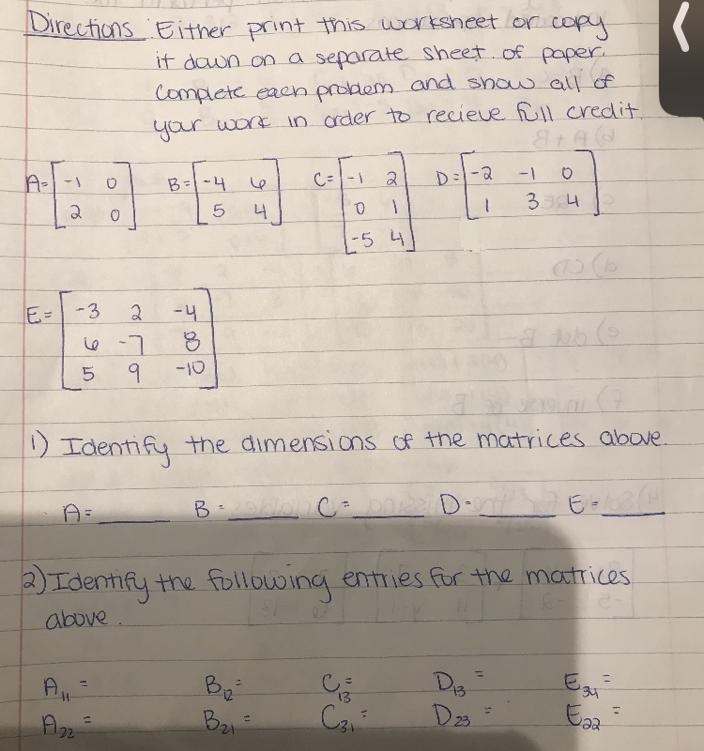 Directions: Either print this worksheet or copy
it down on a separate sheet of paper.
Complete each problem and show all of
your work in order to recieve full credit.
A= [-1 0 B= [-4 6 C= [-1 2 D= [-2 -1 0
2 0] 5 4] 0 1 1 3 4]
-5 4]
E= [-3 2 -4
6 -7 8
5 9 -10]
1) Identify the dimensions of the matrices above.
A= ____ B= ____ C= ____ D= ____ E= ____
2) Identify the following entries for the matrices
above.
A₁₁ = B₁₂ = C₁₃ = D₁₃ = E₃₄ =
A₂₂ = B₂₁ = C₃₁ = D₂₃ = E₂₂ =